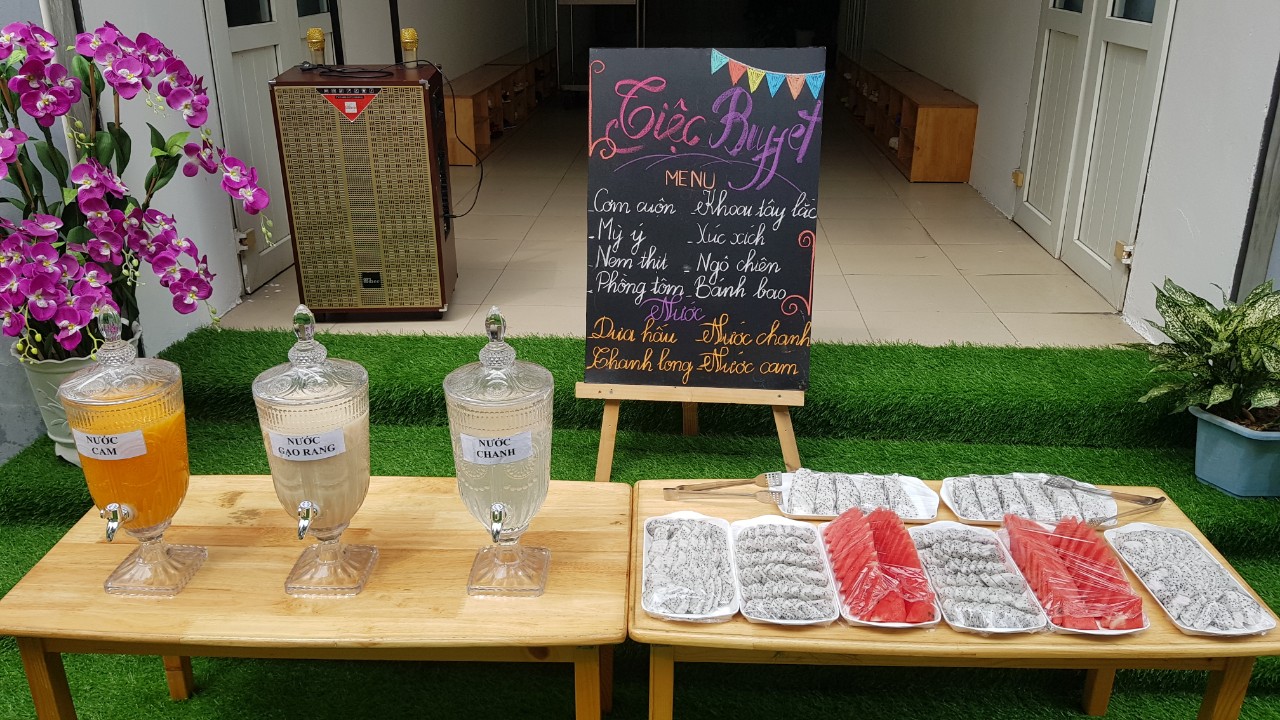 Tiệc Buffet
MENU
- Cơm cuộn - Khoai tây lắc
- Mỳ ý - Xúc xích
Nem thịt - Ngô chiên
Phồng tôm - Bánh bao
Nước
Dưa hấu - Nước chanh
Chanh long - Nước cam
NƯỚC
CAM
NƯỚC
GẠO RANG
NƯỚC
CHANH